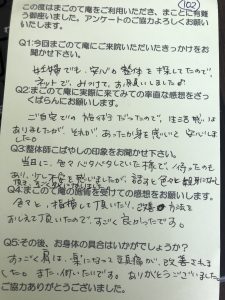 102
この度はまごのて庵をご利用いただき、まことに有難
う御座いました。アンケートのご協力よろしくお願い
いたします。
Q1:今回まごのて庵にご来院いただいたきっかけをお
聞かせ下さい。
妊婦でも、安心の整体を探してたので、
ネットで、みつけて、お願いしました
Q2:まごのて庵に実際に来てみての率直な感想をざっ
くばらんにお願いします。
ご自宅での施術だったので、生活感は
ありましたが、それが、あったか身を感いて安心しま
した。
Q3:整体師こばやしの印象をお聞かせ下さい。
当日に、色々バタバタしていた様で、待ったのも
あり、少し不安を感じましたが、話すと色々親身になって
Q4:まごのて庵の施術を受けての感想をお願いします。
色々と、指摘して頂いたり、改善方法を
おしえて頂いたので、すごく良かったです。
Q5:その後、お身体の具合はいかがでしょうか?
すっごく肩は、楽になって頭痛が、改善されま
した。また、伺いたいです。ありがとうございました。
ご協力ありがとうございました。